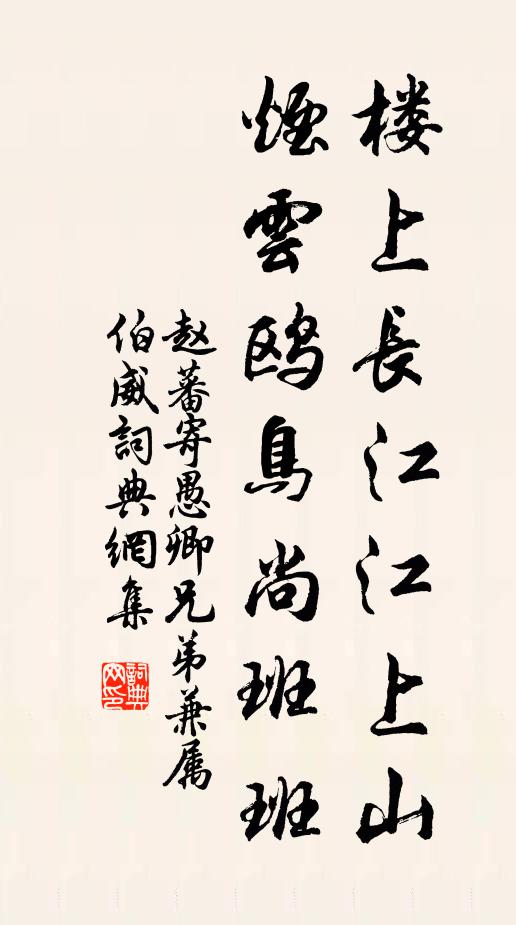 楼上長江江上山
煙雲鸥鳥尚班班
赵蕃寄愚卿兄弟兼属
伯威詞典網集
詞典
网印